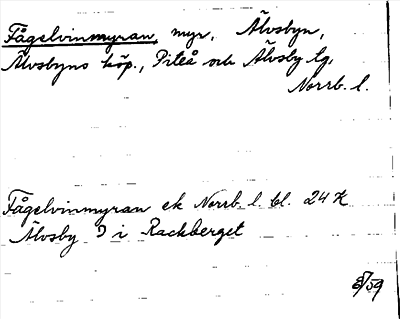 Fågelvinmyran, myr, Älvsbyn,
Älvsbyns köp., Piteå och Älvsby tg,
Norrb. l.
Fågelvinmyran ek Norrb. l. bl. 24 K
Älvsby I i Rackberget
8/59